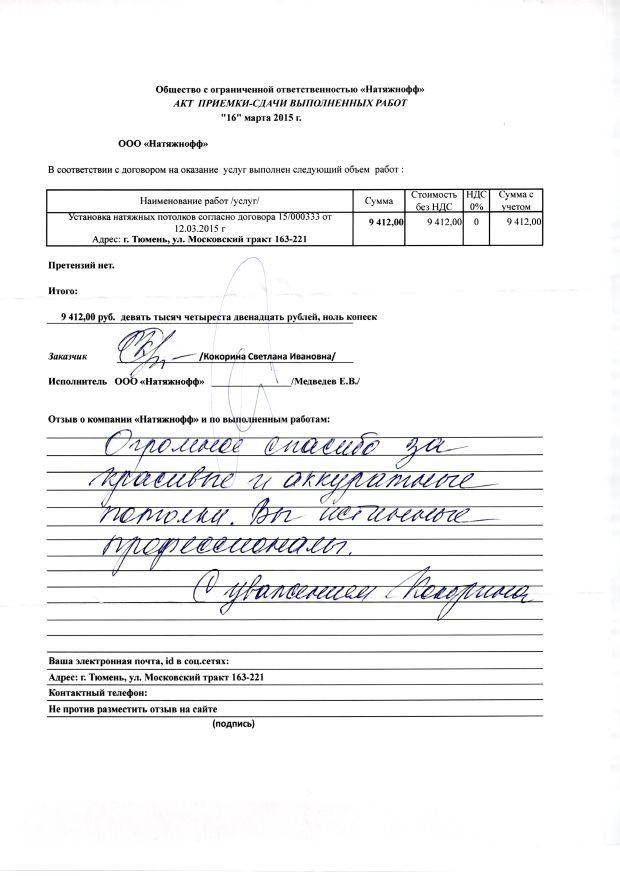 Общество с ограниченной ответственностью «Натяжнофф»
АКТ ПРИЕМКИ-СДАЧИ ВЫПОЛНЕННЫХ РАБОТ
"16" марта 2015 г.
ООО «Натяжнофф»
В соответствии с договором на оказание услуг выполнен следующий объем работ :
Наименование работ /услуг/ Сумма Стоимость без НДС НДС 0% Сумма с учетом
Установка натяжных потолков согласно договора 15/000333 от 12.03.2015 г 9 412,00 9 412,00 0 9 412,00
Адрес: г. Тюмень, ул. Московский тракт 163-221
Претензий нет.
Итого:
9 412,00 руб. девять тысяч четыреста двенадцать рублей, ноль копеек
Заказчик /Кокорина Светлана Ивановна/
Исполнитель ООО «Натяжнофф» /Медведев Е.В./
Отзыв о компании «Натяжнофф» и по выполненным работам:
Огромное спасибо за
красивые и аккуратные
потолки. Вы истинные
профессионалы.
С уважением Кокорина
Ваша электронная почта, id в соц.сетях:
Адрес: г. Тюмень, ул. Московский тракт 163-221
Контактный телефон:
Не против разместить отзыв на сайте
(подпись)